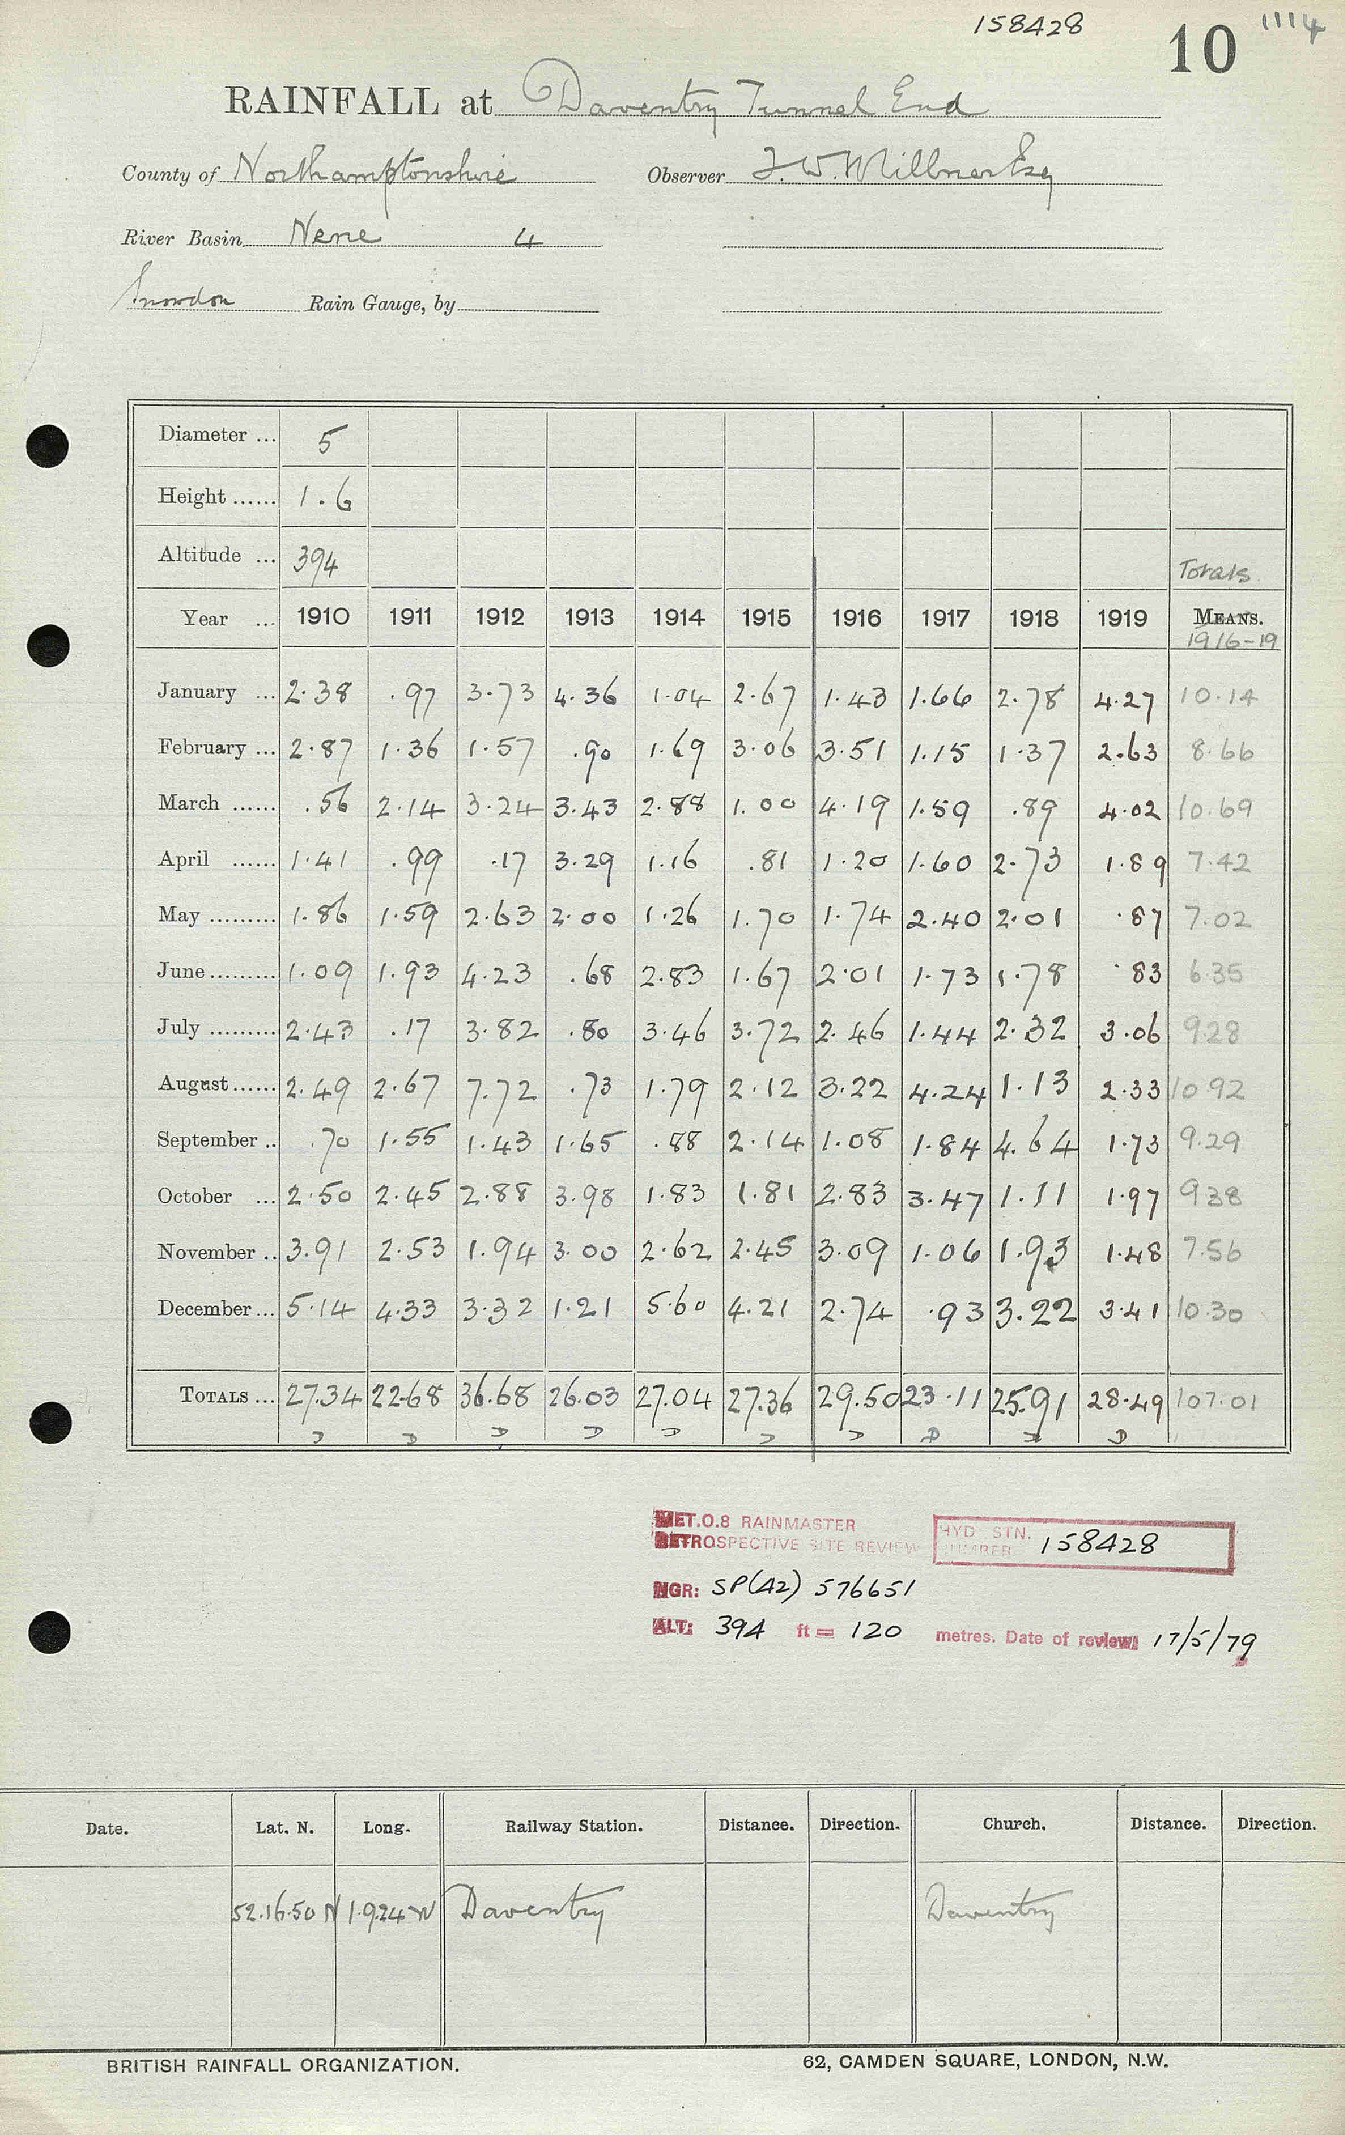 158428 10 1114
RAINFALL at Daventry Tunnel End
County of Northamptonshire Observer F. W. Millner Esq
River Basin Nene 4
Snowdon Rain Gauge, by
Diameter ... 5
Height ...... 1.6
Altitude ... 394 Totals
Year ... 1910 1911 1912 1913 1914 1915 1916 1917 1918 1919 MEANS.
1916-19
January ... 2.38 .97 3.73 4.36 1.04 2.67 1.43 1.66 2.78 4.27 10.14
February ... 2.87 1.36 1.57 .90 1.69 3.06 3.51 1.15 1.37 2.63 8.66
March ...... .56 2.14 3.24 3.43 2.88 1.00 4.19 1.59 .89 4.02 10.69
April ...... 1.41 .99 .17 3.29 1.16 .81 1.20 1.60 2.73 1.89 7.42
May ......... 1.86 1.59 2.63 2.00 1.26 1.70 1.74 2.40 2.01 .87 7.02
June ......... 1.09 1.93 4.23 .68 2.83 1.67 2.01 1.73 1.78 .83 6.35
July ......... 2.43 .17 3.82 .80 3.46 3.72 2.46 1.44 2.32 3.06 9.28
August ...... 2.49 2.67 7.72 .73 1.79 2.12 3.22 4.24 1.13 2.33 10.92
September .. .70 1.55 1.43 1.65 .88 2.14 1.08 1.84 4.64 1.73 9.29
October ... 2.50 2.45 2.88 3.98 1.83 1.81 2.83 3.47 1.11 1.97 9.38
November .. 3.91 2.53 1.94 3.00 2.62 2.45 3.09 1.06 1.93 1.48 7.56
December ... 5.14 4.33 3.32 1.21 5.60 4.21 2.74 .93 3.22 3.41 10.30
TOTALS ... 27.34 22.68 36.68 26.03 27.04 27.36 29.50 23.11 25.91 28.49 107.01
MET.O.8 RAINMASTER
RETROSPECTIVE SITE REVIEW HYD STN. NUMBER 158428
NGR: SP(42) 576651
ALT: 394 ft = 120 metres. Date of review: 17/5/79
Date. Lat. N. Long. Railway Station. Distance. Direction. Church. Distance. Direction.
52.16.50 N 1.9.24 W Daventry Daventry
BRITISH RAINFALL ORGANIZATION. 62, CAMDEN SQUARE, LONDON, N.W.